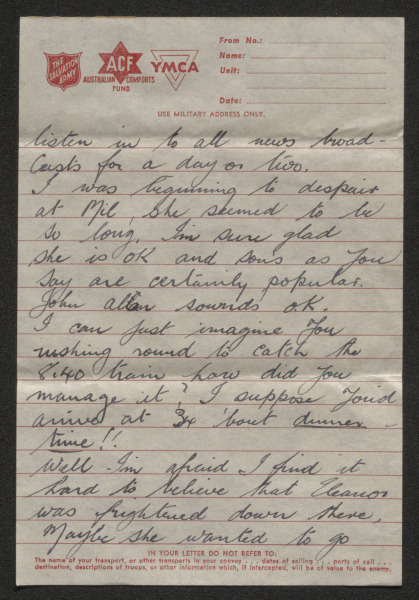 THE SALVATION ARMY
ACF
AUSTRALIAN COMFORTS FUND
YMCA
From No.:
Name:
Unit:
Date:
USE MILITARY ADDRESS ONLY.
listen in to all news broad-
casts for a day or two.
I was beginning to despair
at Mil, she seemed to be
so long. I'm sure glad
she is OK and sons as you
say are certainly popular.
John allan sounds O.K.
I can just imagine you
rushing round to catch the
8.40 train how did you
manage it? I suppose you'd
arrive at 'bout dinner-
time!!
Well I'm afraid I find it
hard to believe that Eleanor
was frightened down there,
Maybe she wanted to go
IN YOUR LETTER DO NOT REFER TO:
The name of your transport, or other transports in your convoy . . . dates of sailing . . . ports of call . . .
destination, descriptions of troops, or other information which, if intercepted, will be of value to the enemy.